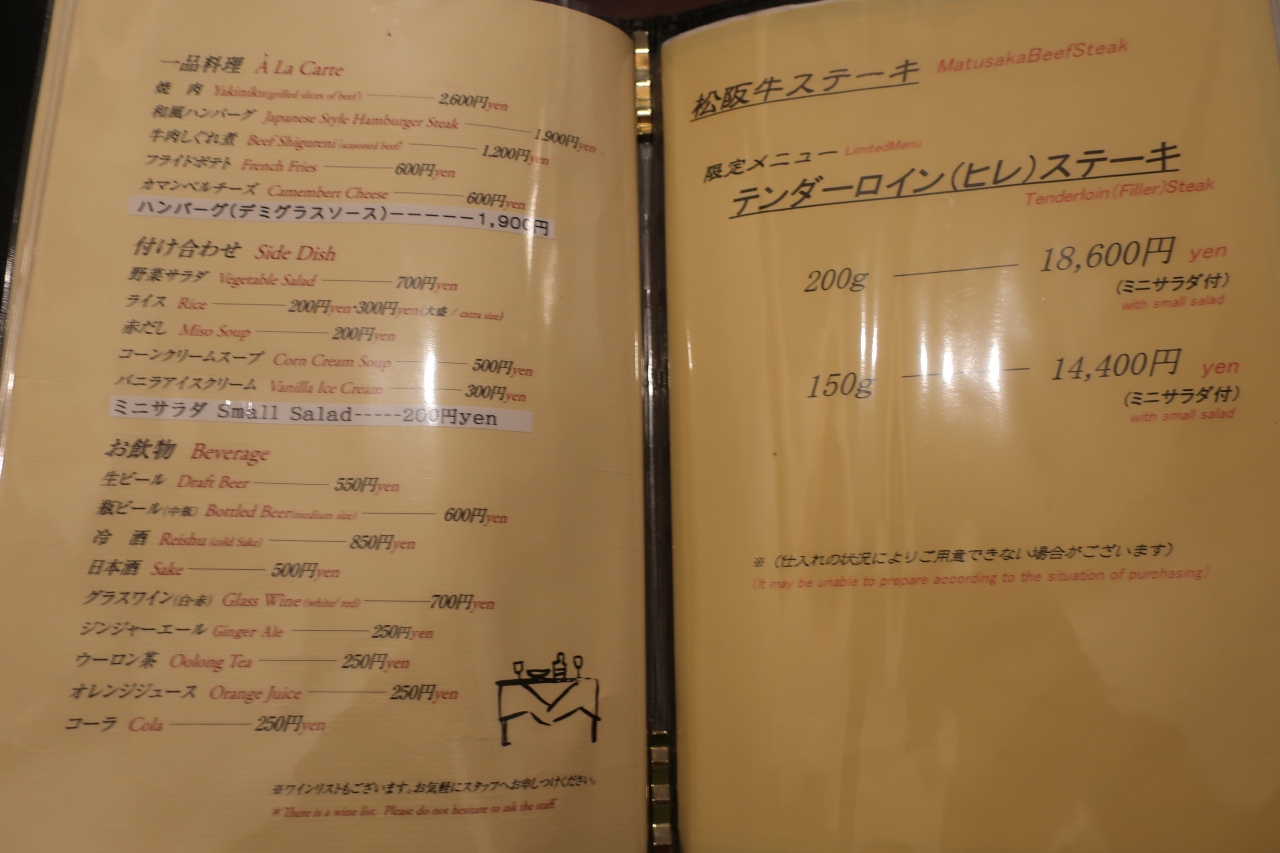 一品料理 À La Carte
焼 肉 Yakiniku(grilled slices of beef) 2,600円yen
和風ハンバーグ Japanese Style Hamburger Steak 1,900円yen
牛肉しぐれ煮 Beef Shigureni (seasoned beef) 1,200円yen
フライドポテト French Fries 600円yen
カマンベルチーズ Camembert Cheese 600円yen
ハンバーグ(デミグラスソース)-----1,900円
付け合わせ Side Dish
野菜サラダ Vegetable Salad 700円yen
ライス Rice 200円yen・300円yen(大盛 / extra size)
赤だし Miso Soup 200円yen
コーンクリームスープ Corn Cream Soup 500円yen
バニラアイスクリーム Vanilla Ice Cream 300円yen
ミニサラダ Small Salad-----200円yen
お飲物 Beverage
生ビール Draft Beer 550円yen
瓶ビール(中瓶) Bottled Beer(medium size) 600円yen
冷 酒 Reishu (cold Sake) 850円yen
日本酒 Sake 500円yen
グラスワイン(白・赤) Glass Wine (white/ red) 700円yen
ジンジャーエール Ginger Ale 250円yen
ウーロン茶 Oolong Tea 250円yen
オレンジジュース Orange Juice 250円yen
コーラ Cola 250円yen
※ワインリストもございます。お気軽にスタッフへお申しつけください。
※There is a wine list. Please do not hesitate to ask the staff.
松阪牛ステーキ MatusakaBeefSteak
限定メニュー LimitedMenu
テンダーロイン(ヒレ)ステーキ
Tenderloin(Filler)Steak
200g 18,600円 yen
(ミニサラダ付)
with small salad
150g 14,400円 yen
(ミニサラダ付)
with small salad
※(仕入れの状況によりご用意できない場合がございます)
(It may be unable to prepare according to the situation of purchasing)